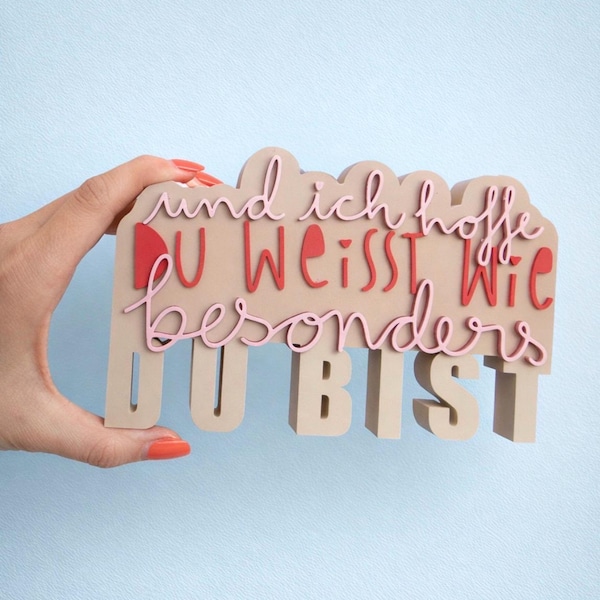 und ich hoffe
DU WeisST Wie
besonders
DU BIST